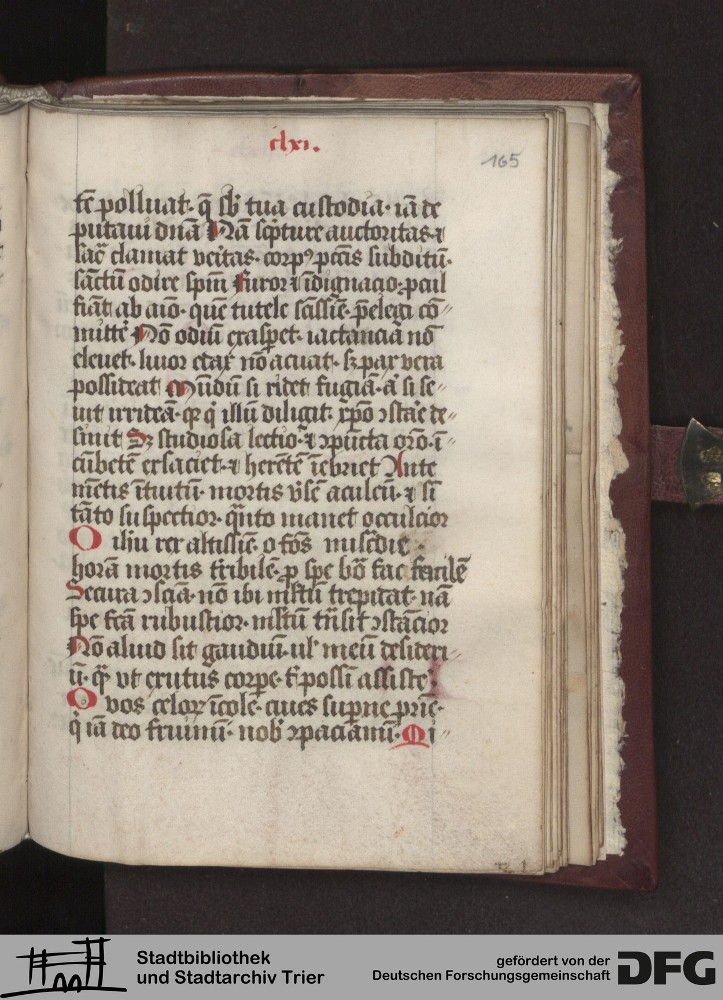 clxi.
165
tē polluat. q̄ sb tua custodia. iā de
putaui dn̄ā Nā sc̄pture auctoritas. ⁊
sac̄ clamat veritas. corp⁹ pctīs subditū.
sāctū odire spm̄ Furor ⁊ īdignacio. pcul
fiāt ab aīo. quē tutele
mitte Nō odiū exaspet. iactanciā nō
eleuet. liuor etaȝ nō acuat. sȝ pax vera
possideat Mūdū si ridet fugiā. a si se〃
uit irrideā. qȝ q illū diligit. xp̄o ↄstare de〃
sinit Sȝ studiosa lectio. ⁊ ↄpūcta orō. ī〃
cūbētē exsaciet. ⁊ herētē īebriet Ante
mētis ītuitū. mortis aculeū. ⁊
tāto suspectior. q̄nto manet occulcior
O ihū rex altissīe. o fōs misc̄die.
horā mortis tribilē. p spe bō fac
Secura ↄsciā. nō ibi mltū trepidat. nā
spe fcā rubustior. mltū ↄstācior
Nō aliud sit gaudiū. ul' meū desideri〃
ū. q̄ vt exutus corpe. t' possī assiste.
O vos celoȝ īcole. ciues supne pr̄ie.
q iā deo fruimī. nob ↄpaciāmī. Mi〃
Stadtbibliothek
und Stadtarchiv Trier
gefördert von der
Deutschen Forschungsgemeinschaft
DFG